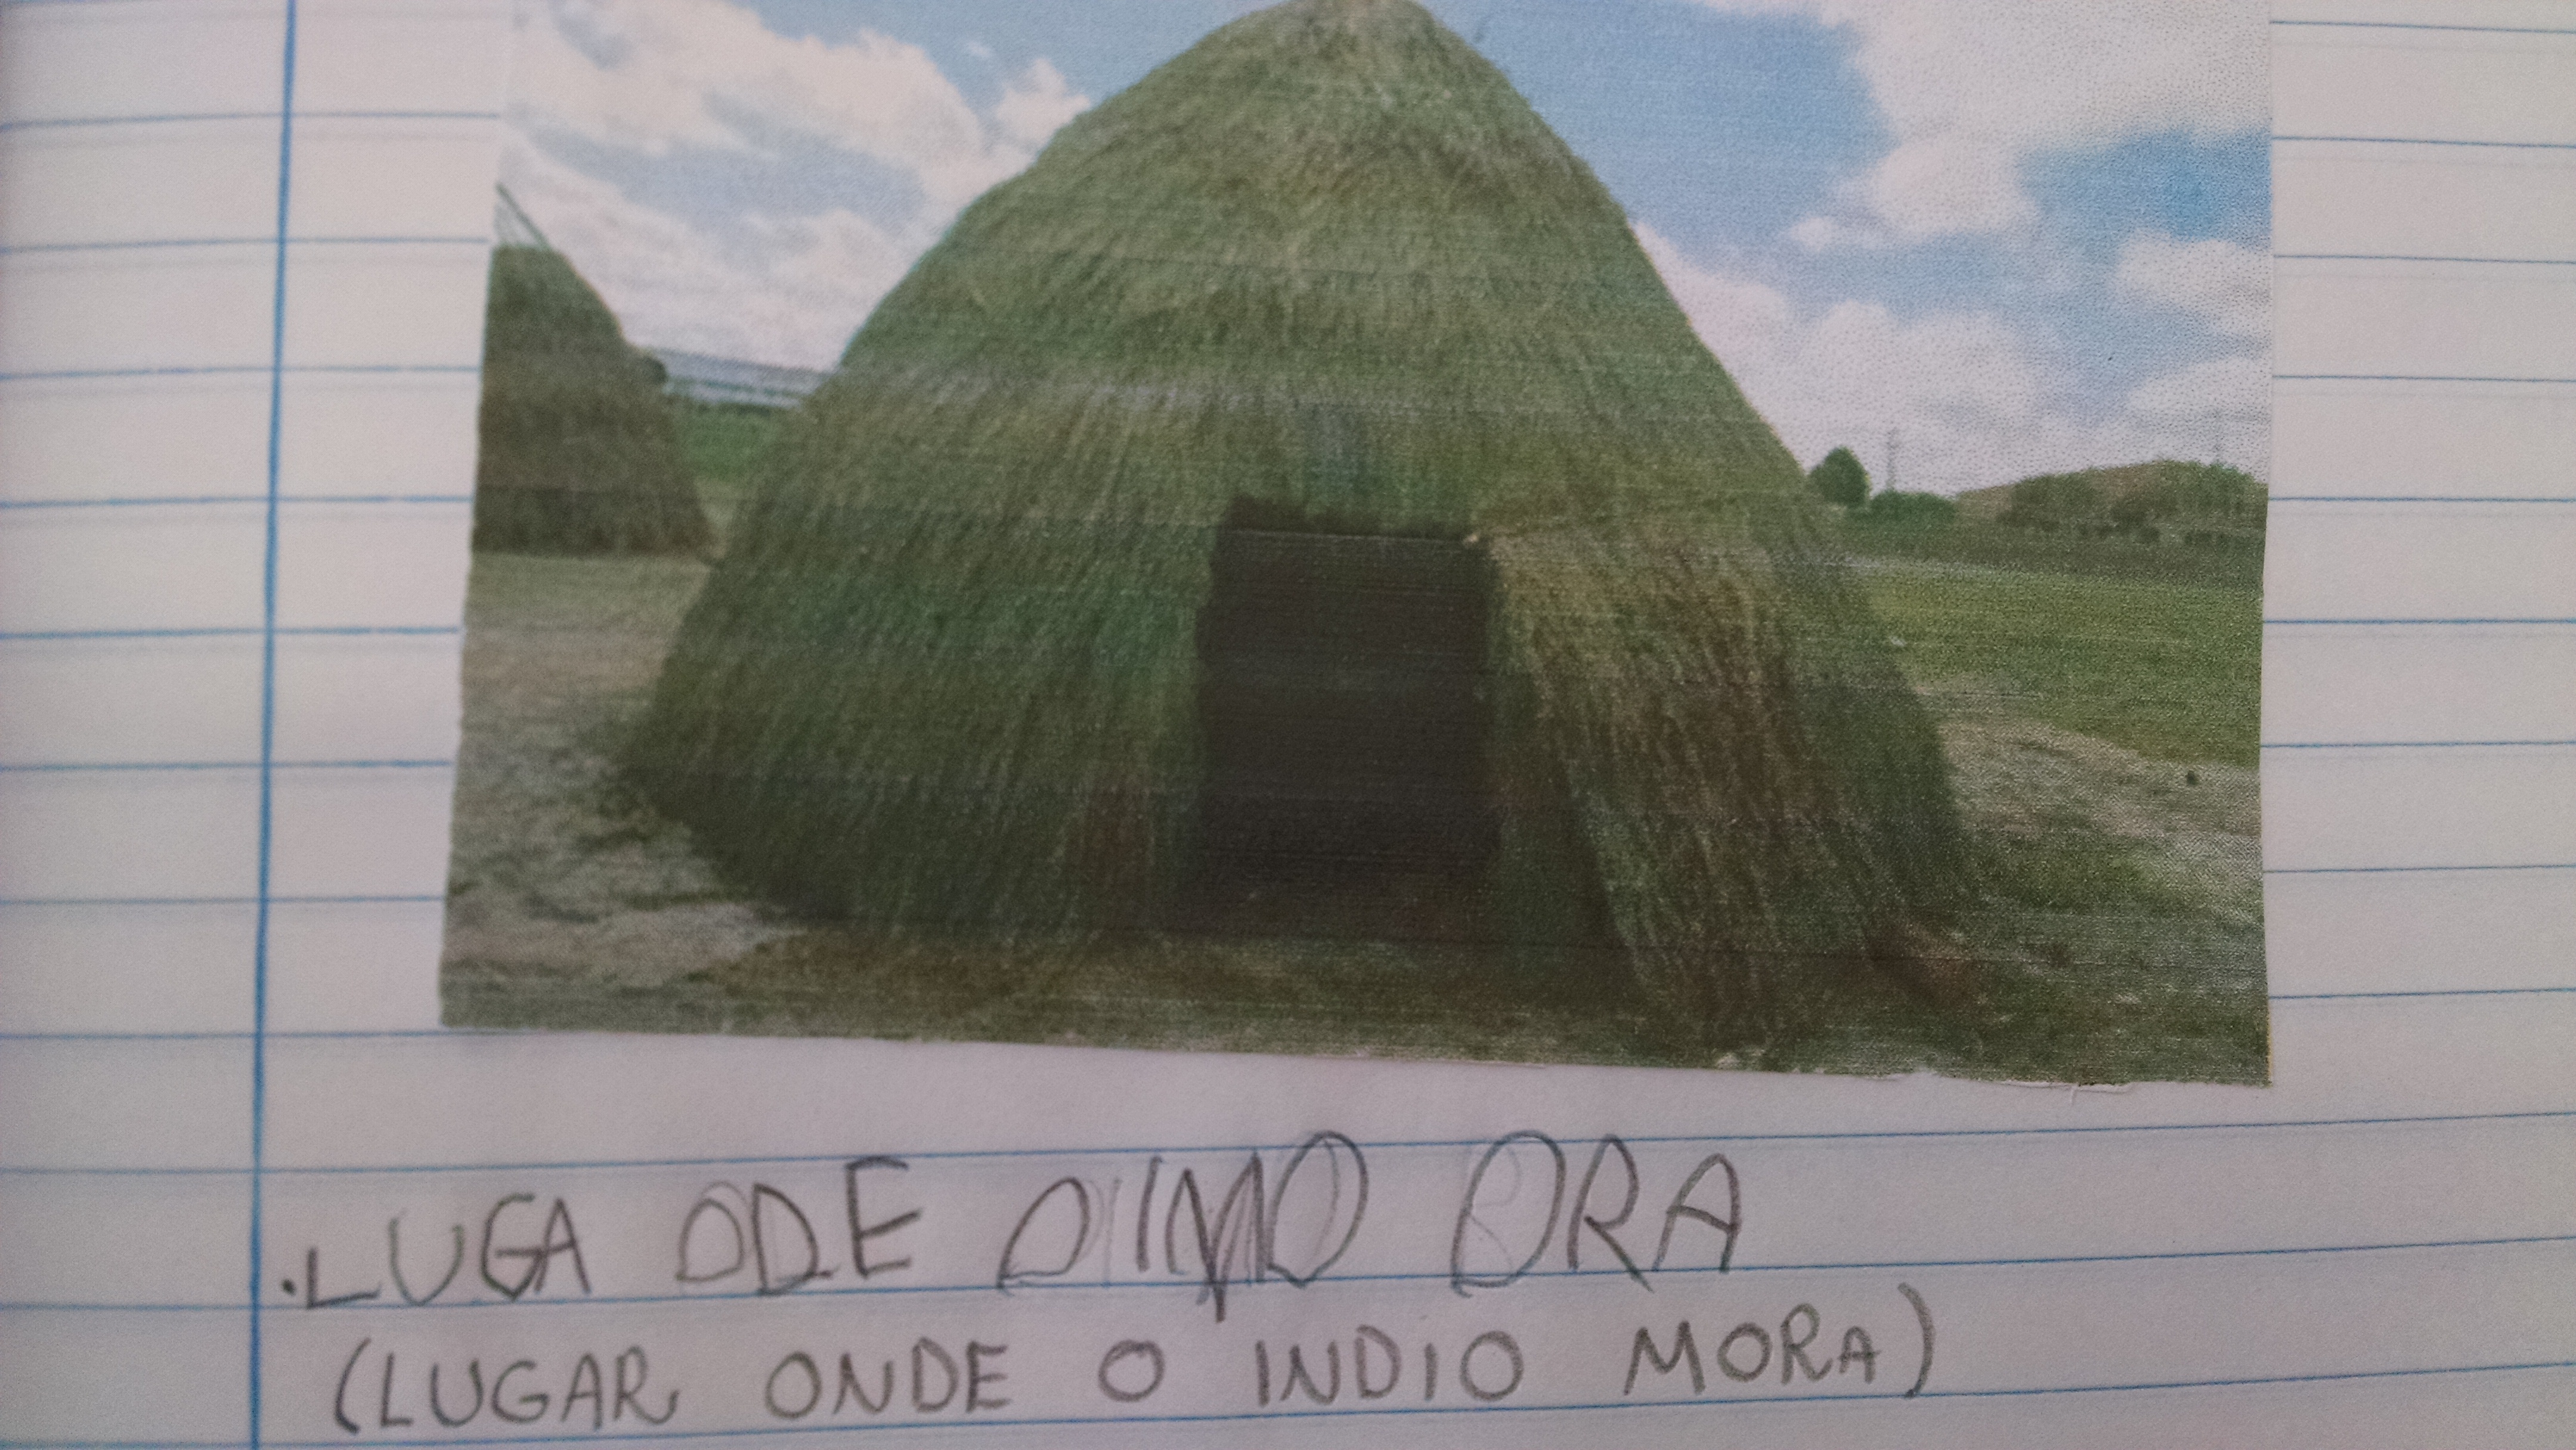 .LUGA ODE OIMO ORA
(LUGAR ONDE O INDIO MORA)